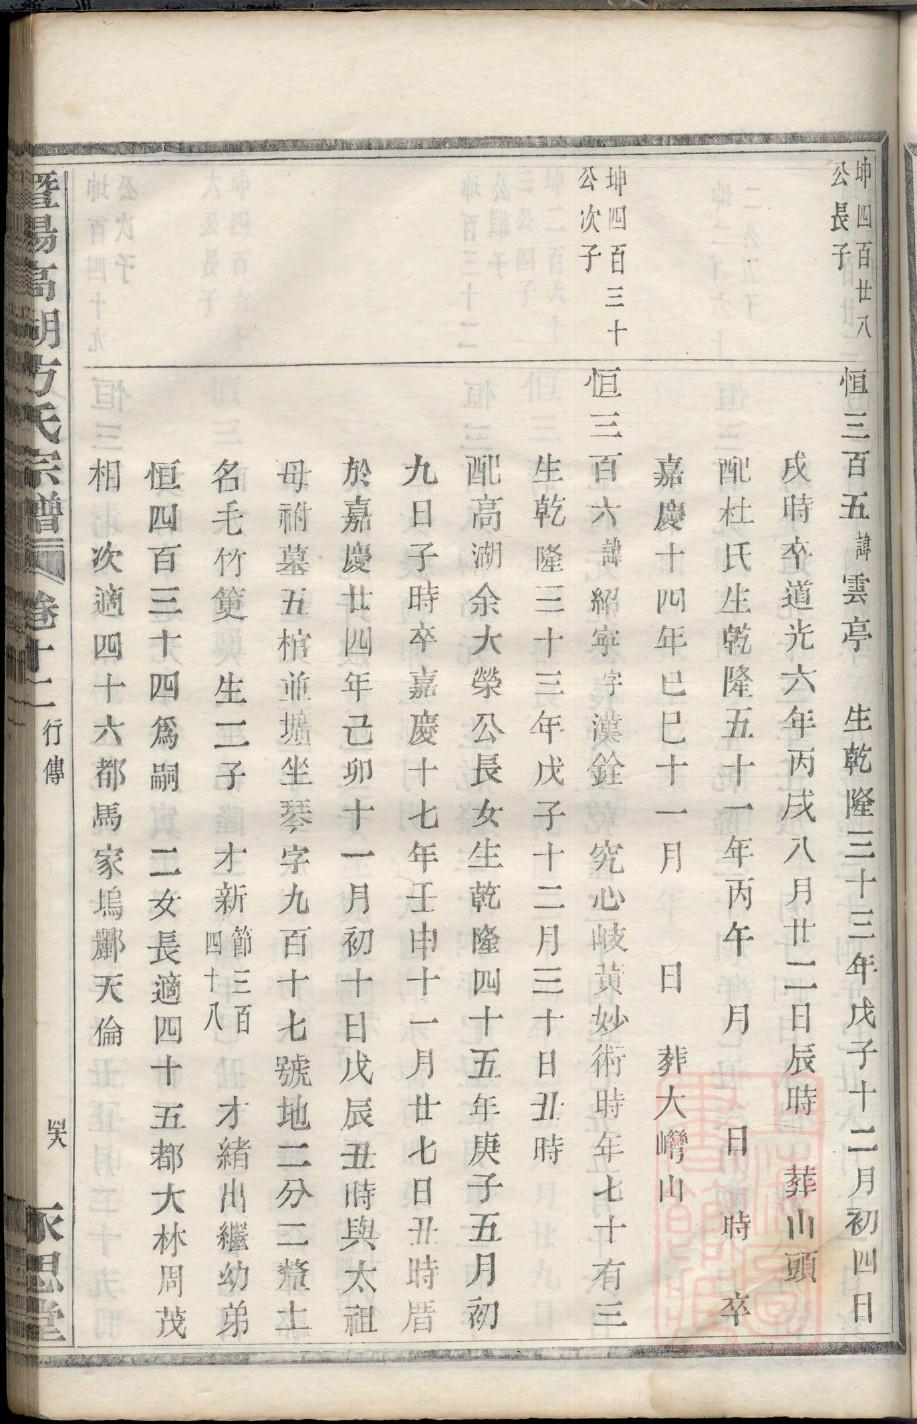 坤四百廿八
公長子
恒三百五諱雲亭 生乾隆三十三年戊子十二月初四日
戌時卒道光六年丙戌八月廿二日辰時 葬山頭
配杜氏生乾隆五十一年丙午 月 日 時 卒
嘉慶十四年己巳十一月 日 葬大巒山
坤四百三十
公次子
恒三百六諱紹寜字漢銓 究心岐黄妙術時年七十有三
生乾隆三十三年戊子十二月三十日丑時
配高湖余大榮公長女生乾隆四十五年庚子五月初
九日子時卒嘉慶十七年壬申十一月廿七日丑時厝
於嘉慶廿四年己卯十一月初十日戊辰丑時與太祖
母祔墓五棺並壙坐琴字九百十七號地二分二釐土
名毛竹筻 生二子才新節三百
四十八
才緒出繼幼弟
恒四百三十四爲嗣 二女長適四十五都大林周茂
相 次適四十六都馬家塢酈天倫
暨陽高湖方氏宗譜 卷十一 行傳 永思堂